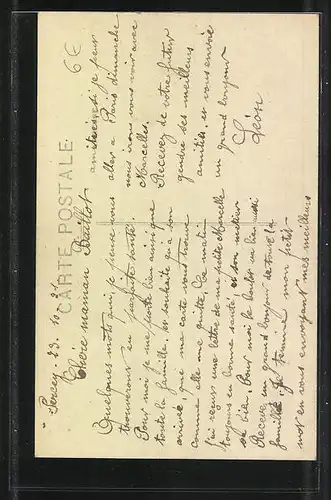 6€
CARTE POSTALE
23. 10. 21
Chère maman
Quelques mots qui je pense vous
trouveront en parfaite santé.
Pour moi je me porte bien ainsi que
toute la famille, et souhaite qu'à son
arrivée, que ma carte vous trouve
comme elle me quitte. Ce matin
j'ai reçu une lettre de ma petite Marcelle
toujours en bonne santé et son métier
va bien. Pour moi le boulot va bien aussi
Recevez un grand bonjour de toute la
famille. Je termine mon petit
mot en vous envoyant mes meilleurs
amitiés. si je peux
aller à Paris dimanche
nous irons vous voir avec
Marcelle.
Recevez de votre futur
gendre ses meilleurs
amitiés, et vous envoie
un grand bonjour
Léon